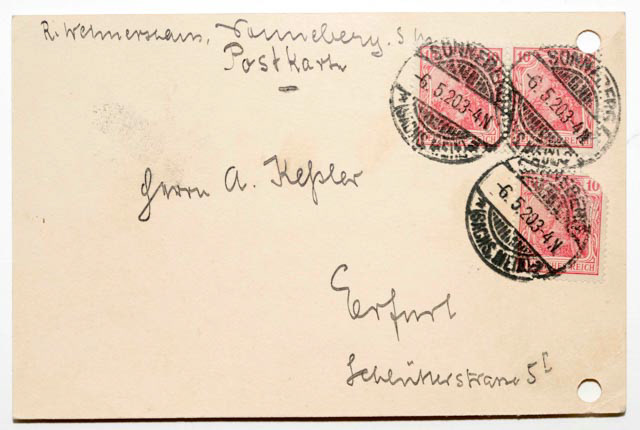 R. Wehmershaus, Sonneberg. S
Postkarte
Herrn A. Keßler
Erfurt
Schlüterstrasse 5 I
10
10
10
SONNEBERG
-6.5.20.3-4.N
(SACHS. MEIN.)
SONNEBERG
-6.5.20.3-4.N
SONNEBERG
-6.5.20.3-4.N
(SACHS. MEIN.)
REICH